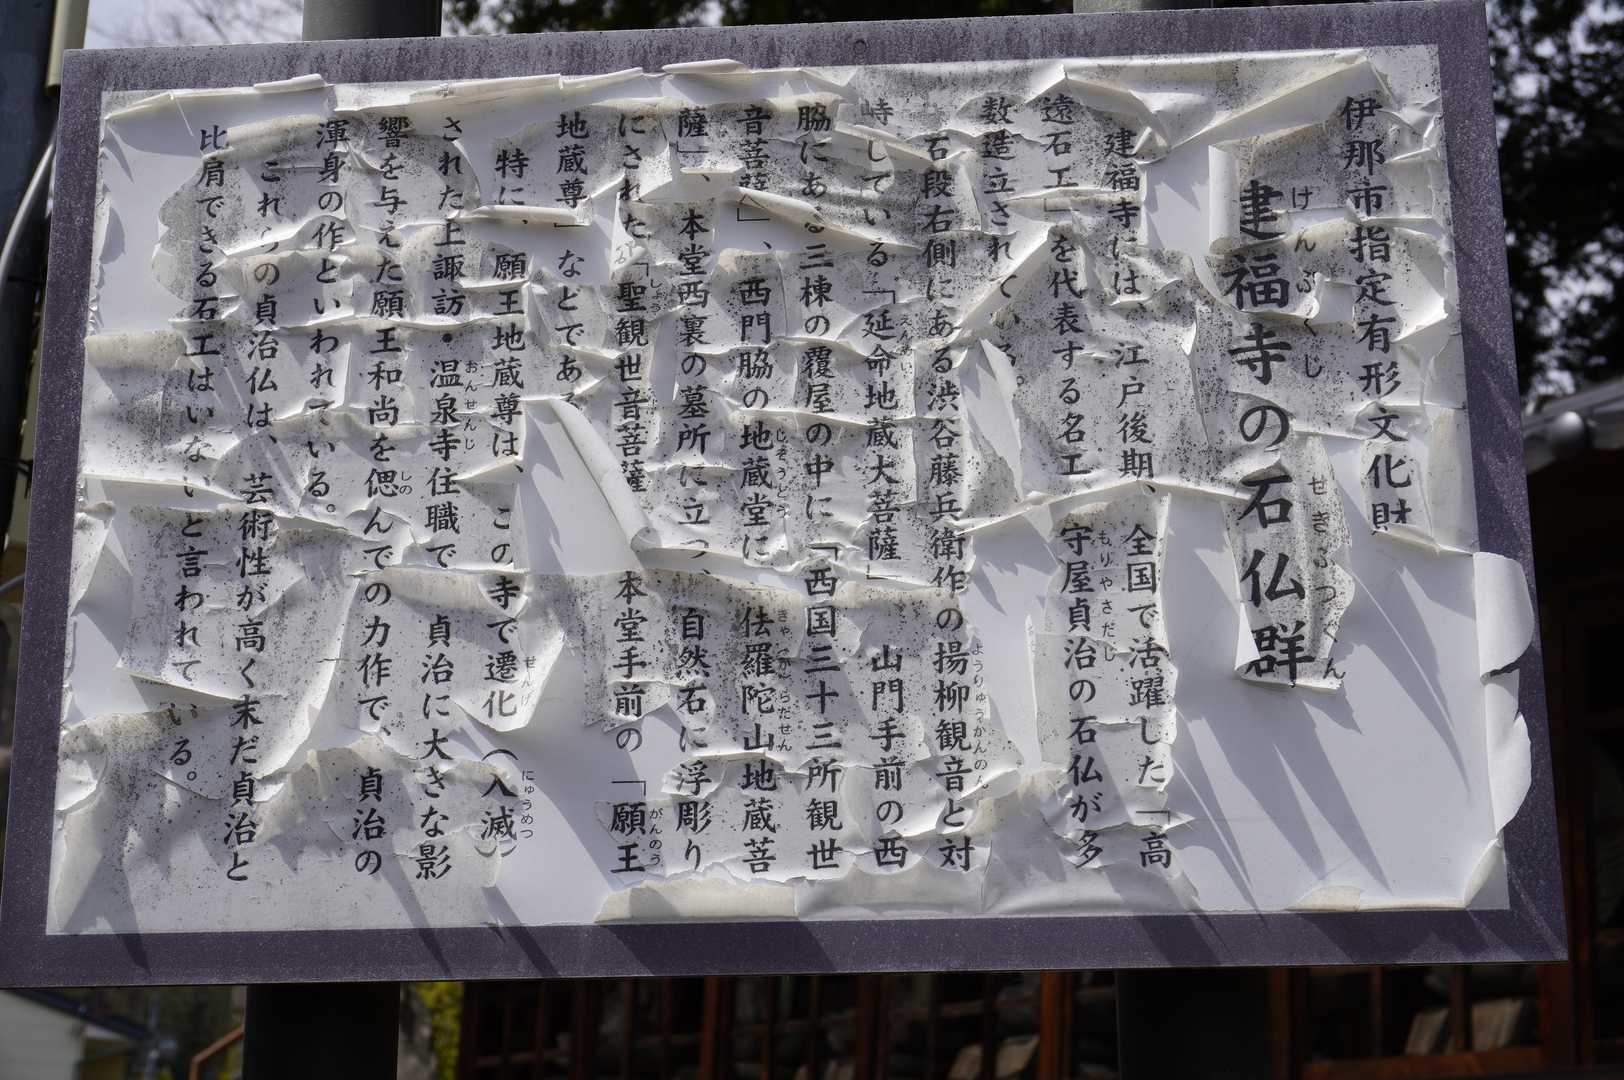 伊那市指定有形文化財
建福寺の石仏群
けんぷくじ せきぶつぐん
建福寺には、江戸後期、全国で活躍した「高
遠石工」を代表する名工 守屋貞治の石仏が多
もりやさだじ
数造立されて
石段右側にある渋谷藤兵衛作の揚柳観音と対
ようりゅうかんのん
峙している「延命地蔵大菩薩」 山門手前の西
えんめい
脇にある三棟の覆屋の中に「西国三十三所観世
音菩薩」、西門脇の地蔵堂に「佉羅陀山地蔵菩
じぞうどう きゃからだせん
薩」、本堂西裏の墓所に立つ、自然石に浮彫り
にされた「聖観世音菩薩 本堂手前の「願王
しょう がんのう
地蔵尊」などである
特に、願王地蔵尊は、この寺で遷化(入滅)
せんげ にゅうめつ
された上諏訪・温泉寺住職で 貞治に大きな影
おんせんじ
響を与えた願王和尚を偲んでの力作で、貞治の
しの
渾身の作といわれている。
これらの貞治仏は、芸術性が高く末だ貞治と
比肩できる石工はいないと言われている。